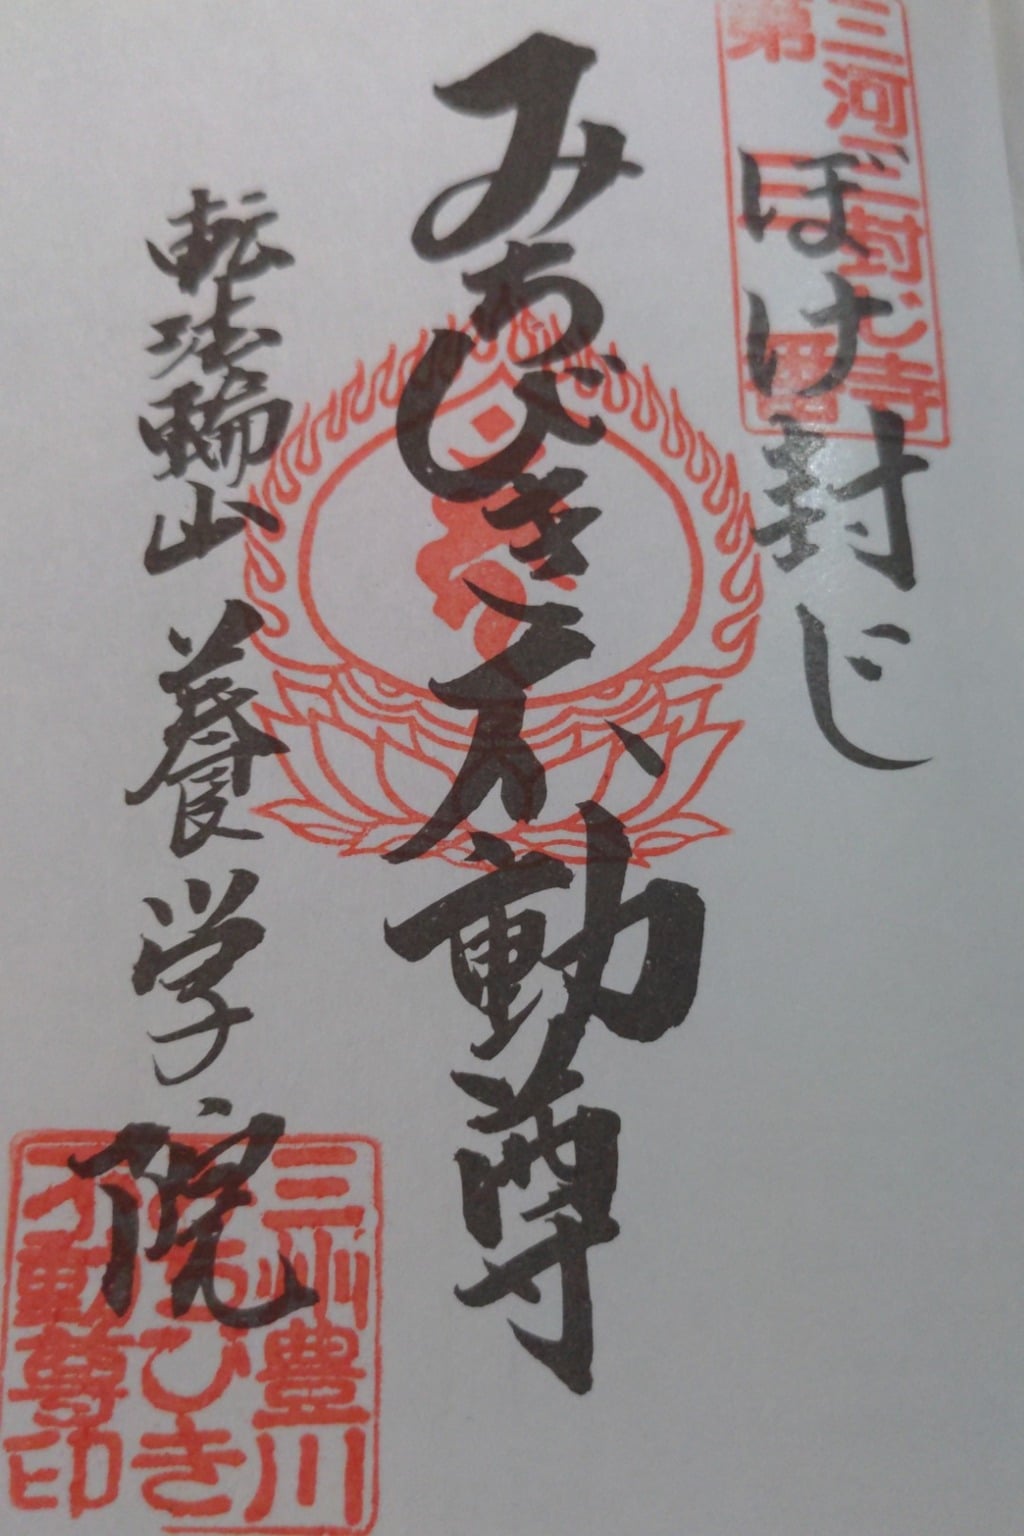 三河三封じ寺
第二番
ぼけ封じ
みちびき不動尊
転法輪山 養学院
三州豊川
みちびき
不動尊印